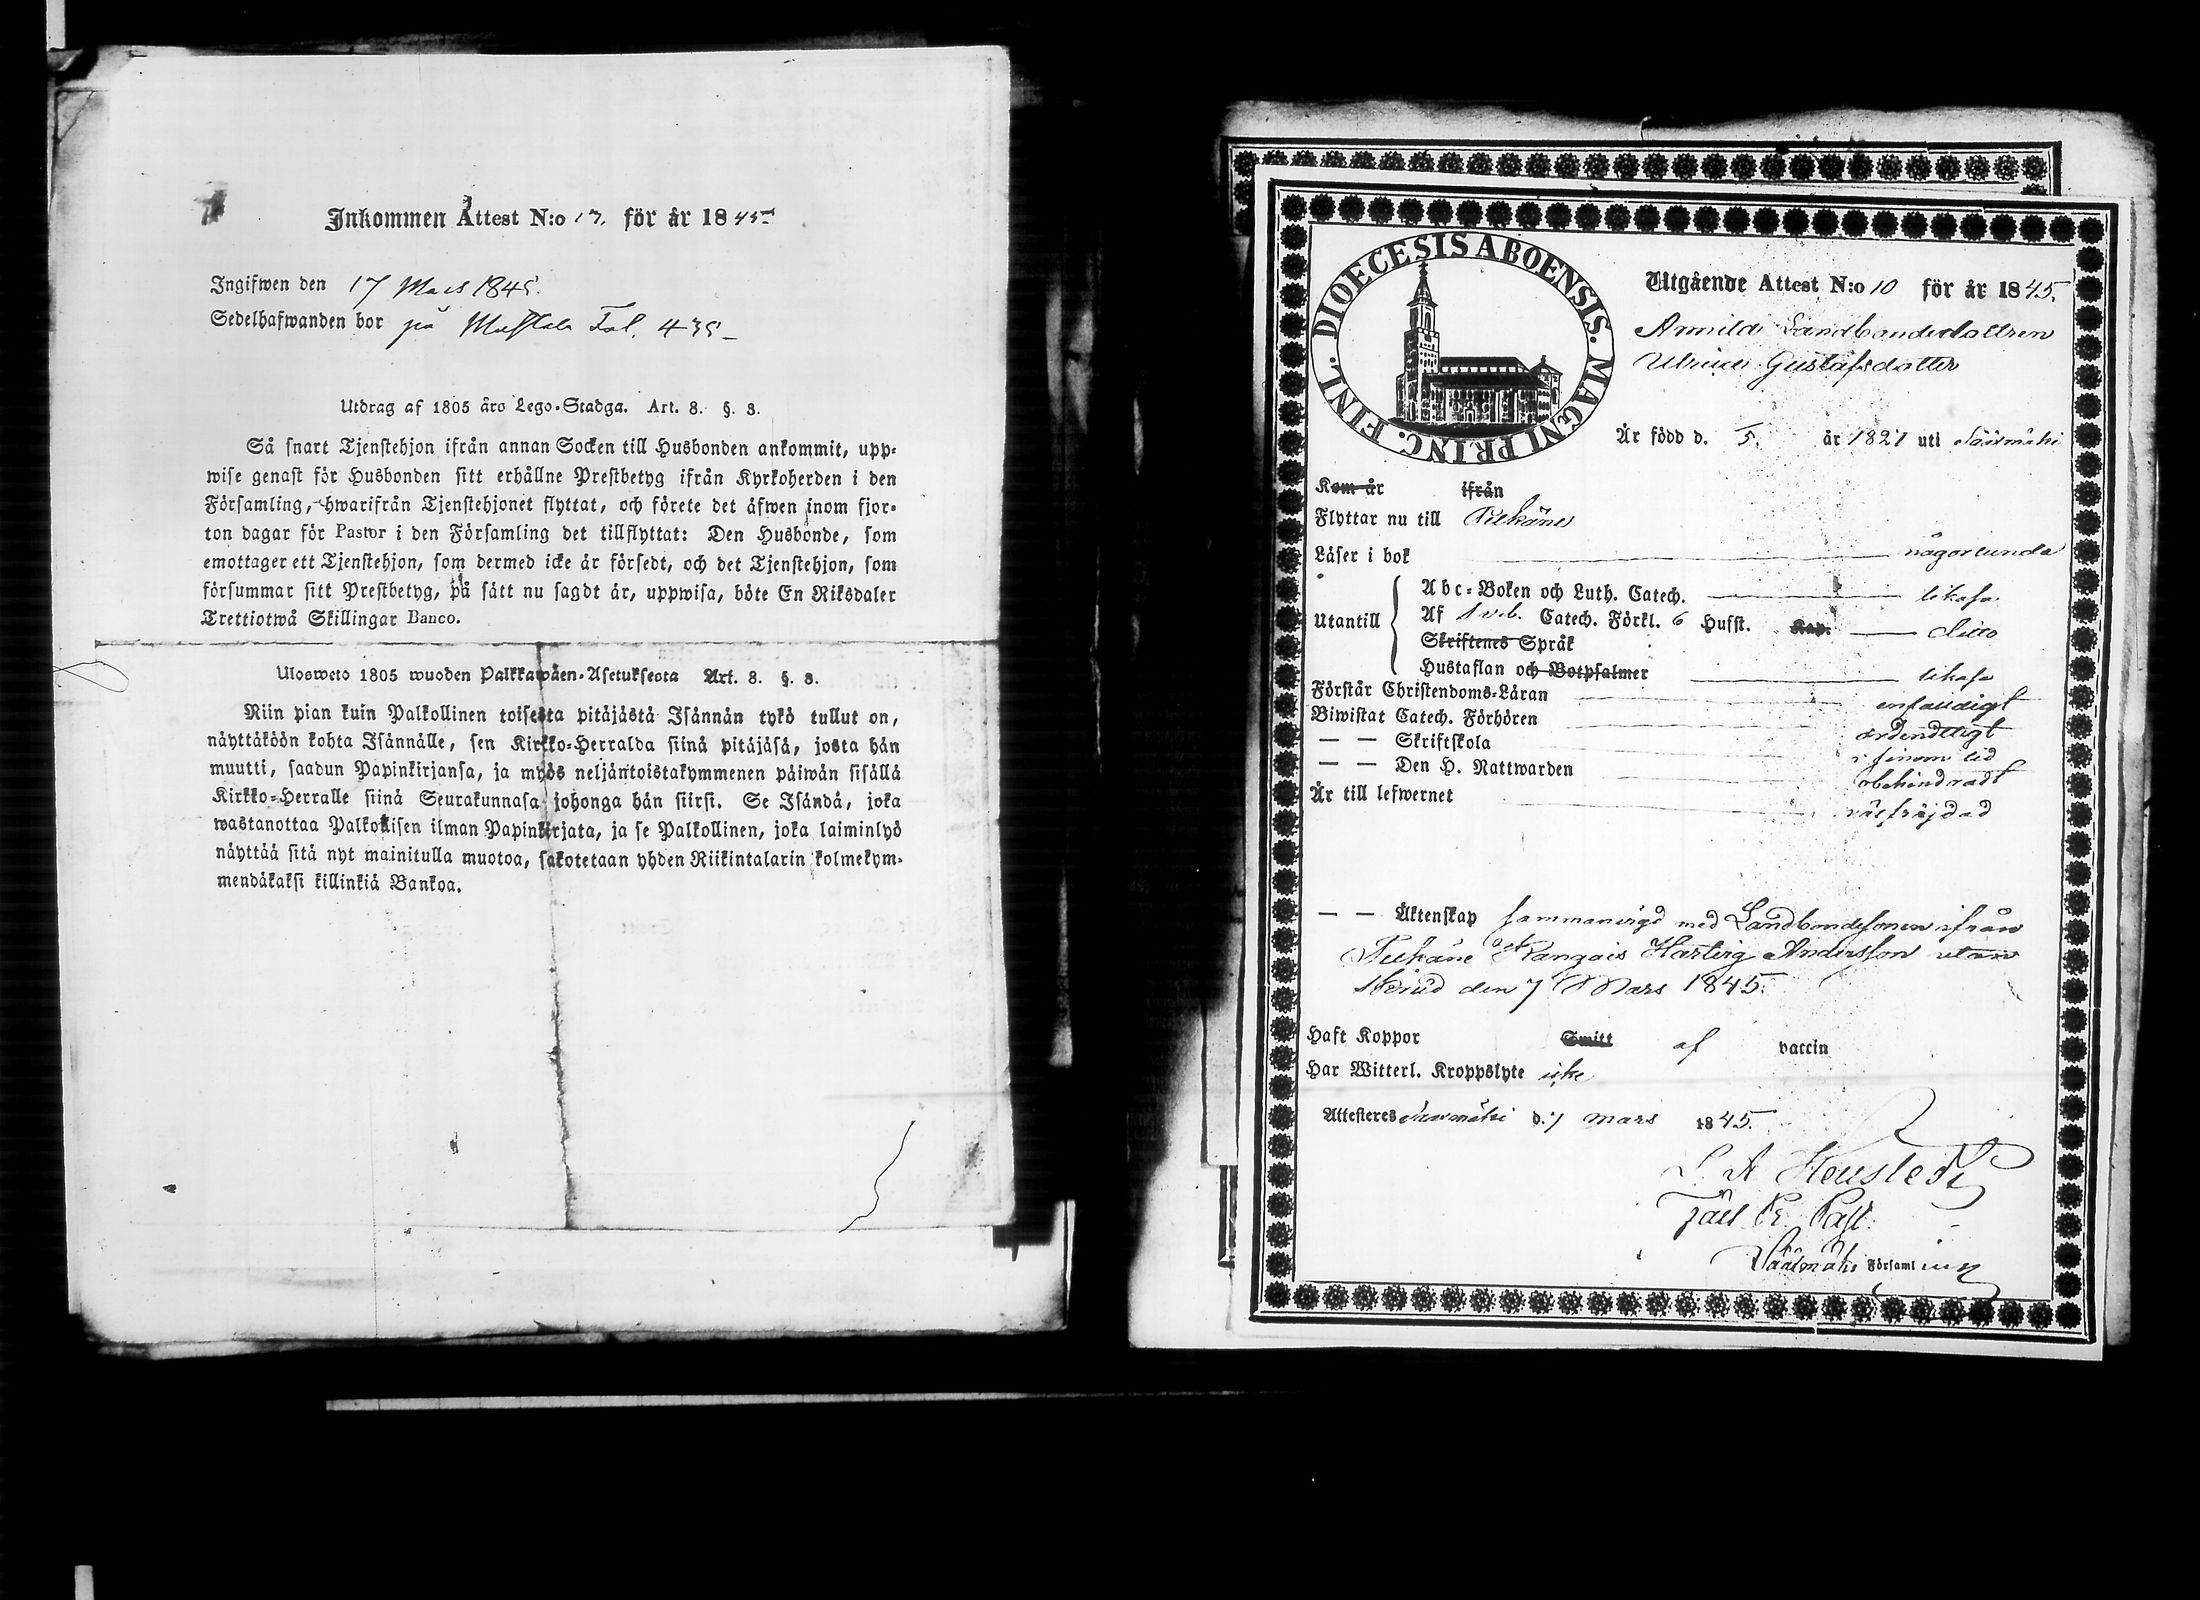 Inkommen Attest N:o 17. för år 1845
Ingifwen den 17 Mars 1845.
Sedelhafwanden bor på Fol. 435
Utdrag af 1805 års Lego-Stadga. Art. 8. §. 3.
Så snart Tjenstehjon ifrån annan Socken till Husbonden ankommit, upp-
wise genast för Husbonden sitt erhållne Prestbetyg ifrån Kyrkoherden i den
Församling, hwarifrån Tjenstehjonet flyttat, och förete det äfwen inom fjor-
ton dagar för Pastor i den Församling det tillflyttat: Den Husbonde, som
emottager ett Tjenstehjon, som dermed icke är försedt, och det Tjenstehjon, som
försummar sitt Prestbetyg, på sätt nu sagdt är, uppwisa, böte En Riksdaler
Trettiotwå Skillingar Banco.
Ulosweto 1805 wuoden Palkkawäen-Asetuksesta Art. 8. §. 3.
Niin pian kuin Palkollinen toisesta pitäjästä Isännän tykö tullut on,
näyttäköön kohta Isännälle, sen Kirkko-Herralda siinä pitäjäsä, josta hän
muutti, saadun Papinkirjansa, ja myös neljäntoistakymmenen päiwän sisällä
Kirkko-Herralle siinä Seurakunnasa johonga hän siirsi. Se Isändä, joka
wastanottaa Palkollisen ilman Papinkirjata, ja se Palkollinen, joka laiminlyö
näyttää sitä nyt mainitulla muotoa, sakotetaan yhden Riikintalarin kolmekym-
mendäkaksi killinkiä Bankoa.
DIOECESIS ABOENSIS. MAGNI PRINC. FINL.
Utgående Attest N:o 10 för år 1845.
Landbondedottren
Gustafsdotter
Är född d. 5. år 1821 uti Sääxmäki
Kom år ifrån
Flyttar nu till Pelkäne
Läser i bok någorlunda
Utantill
Abc-Boken och Luth. Catech. likaså
Af Catech. Förkl. 6 Hufst. Kap. ditto
Skriftenes Språk
Hustaflan och Botpsalmer likaså
Förstår Christendoms-Läran enfaldigt
Biwistat Catech. Förhören ordentligt
— — Skriftskola i sinom tid
— — Den H. Nattwarden obehindradt
Är till lefwernet välfräjdad
— — Äktenskap sammanvigd med Landbondesonen ifrån
Pelkäne Kangais Hartvig Andersson utan
den 7 Mars 1845.
Haft Koppor Smitt af vaccin
Har Witterl. Kroppslyte icke
Attesteres Sääxmäki d. 7 mars 1845.
Past.
Sääxmäki Församling